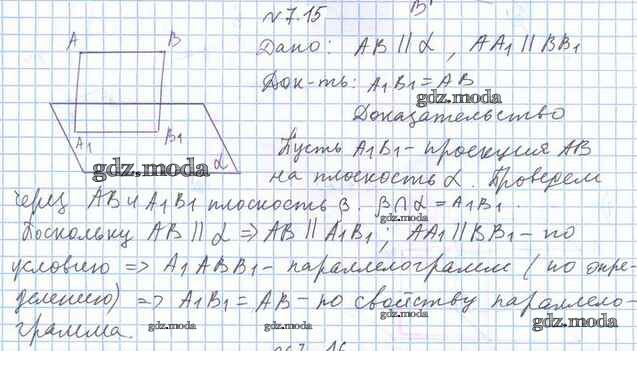 №7.15
Дано: AB || α, AA1 || BB1
Док-ть: A1B1 = AB
gdz.moda
Доказательство
A B
A1 B1
α
gdz.moda
Пусть A1B1 - проекция AB
на плоскость α. Проведем
через AB и A1B1 плоскость β. β∩α = A1B1.
Поскольку AB || α => AB || A1B1; AA1 || BB1 - по
условию => A1ABB1 - параллелограмм (по опре-
делению) => A1B1 = AB - по свойству параллело-
грамма.
gdz.moda gdz.moda gdz.moda